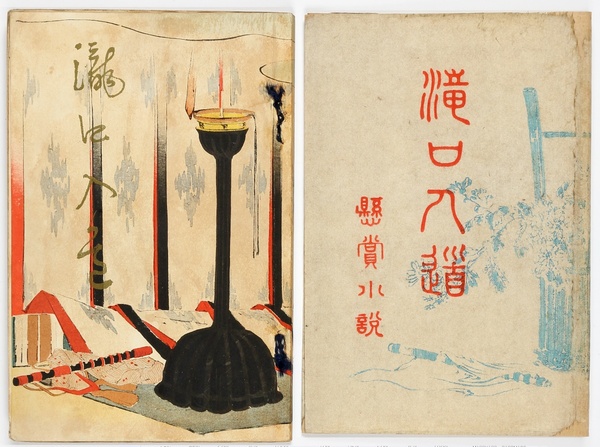 瀧口入道
滝口入道
懸賞小説